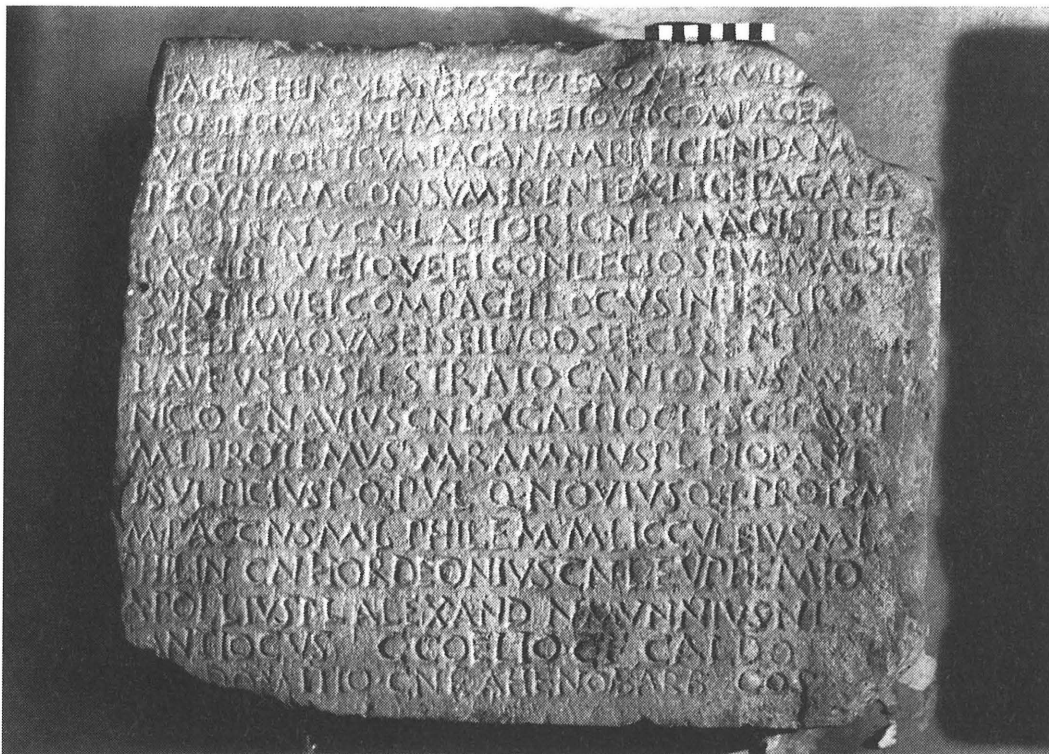 PAGVS HERCVLANEVS SCIVIT A D X TERMI
CONLEGIVM SEIVE MAGISTREI IOVEI COMPAGEI
VTEI IN PORTICVM PAGANAM REFICIENDAM
PEQVNIAM CONSVMERENT EX LEGE PAGANA
ARBITRATV CN LAETORI CN F MAGISTREI
PAGEIEI VTEIQVE EI CONLEGIO SEIVE MAGISTRI
SVNT IOVEI COMPAGEI LOCVS IN TEATRO
ESSET TAM QVA SEI SEI LVDOS FECISSENT
L AVFVSTIVS L L STRATO C ANTONIVS M L
NICO CN AVIVS CN L AGATHOCLES C BLOSSI
M L PROTEMVS M RAMNIVS P L DIOPANT
P SVLPICIVS P Q PV L Q NOVIVS Q L PROTEM
M PACCIVS M L PHILEM M LICCVLEIVS M L
PHILIN CN HORDEONIVS CN L EVPHEMIO
A POLLIVS P L ALEXAND N MVNNIVS N L
ANTIOCVS C COELIO C F CALDO
DOMITIO CN F AHENOBARB COS